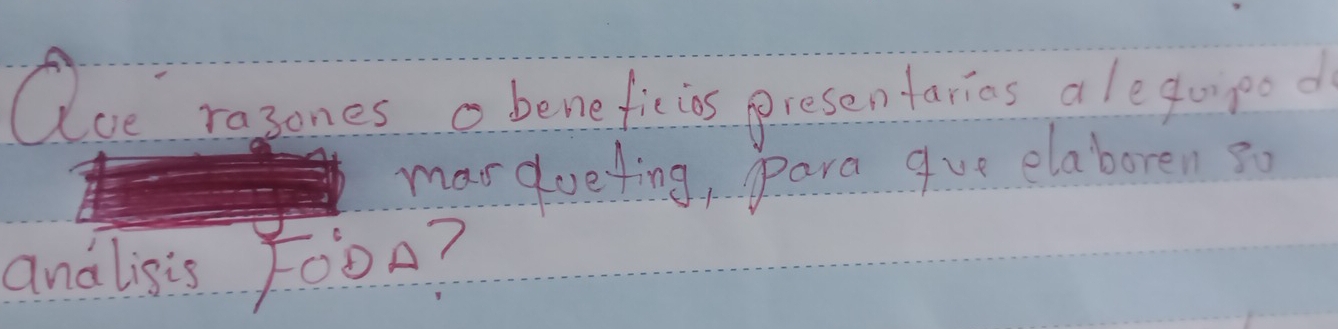 Qué razones o beneficios presentarías al equipo de
marqueting, para que elaboren su
análisis FODA?